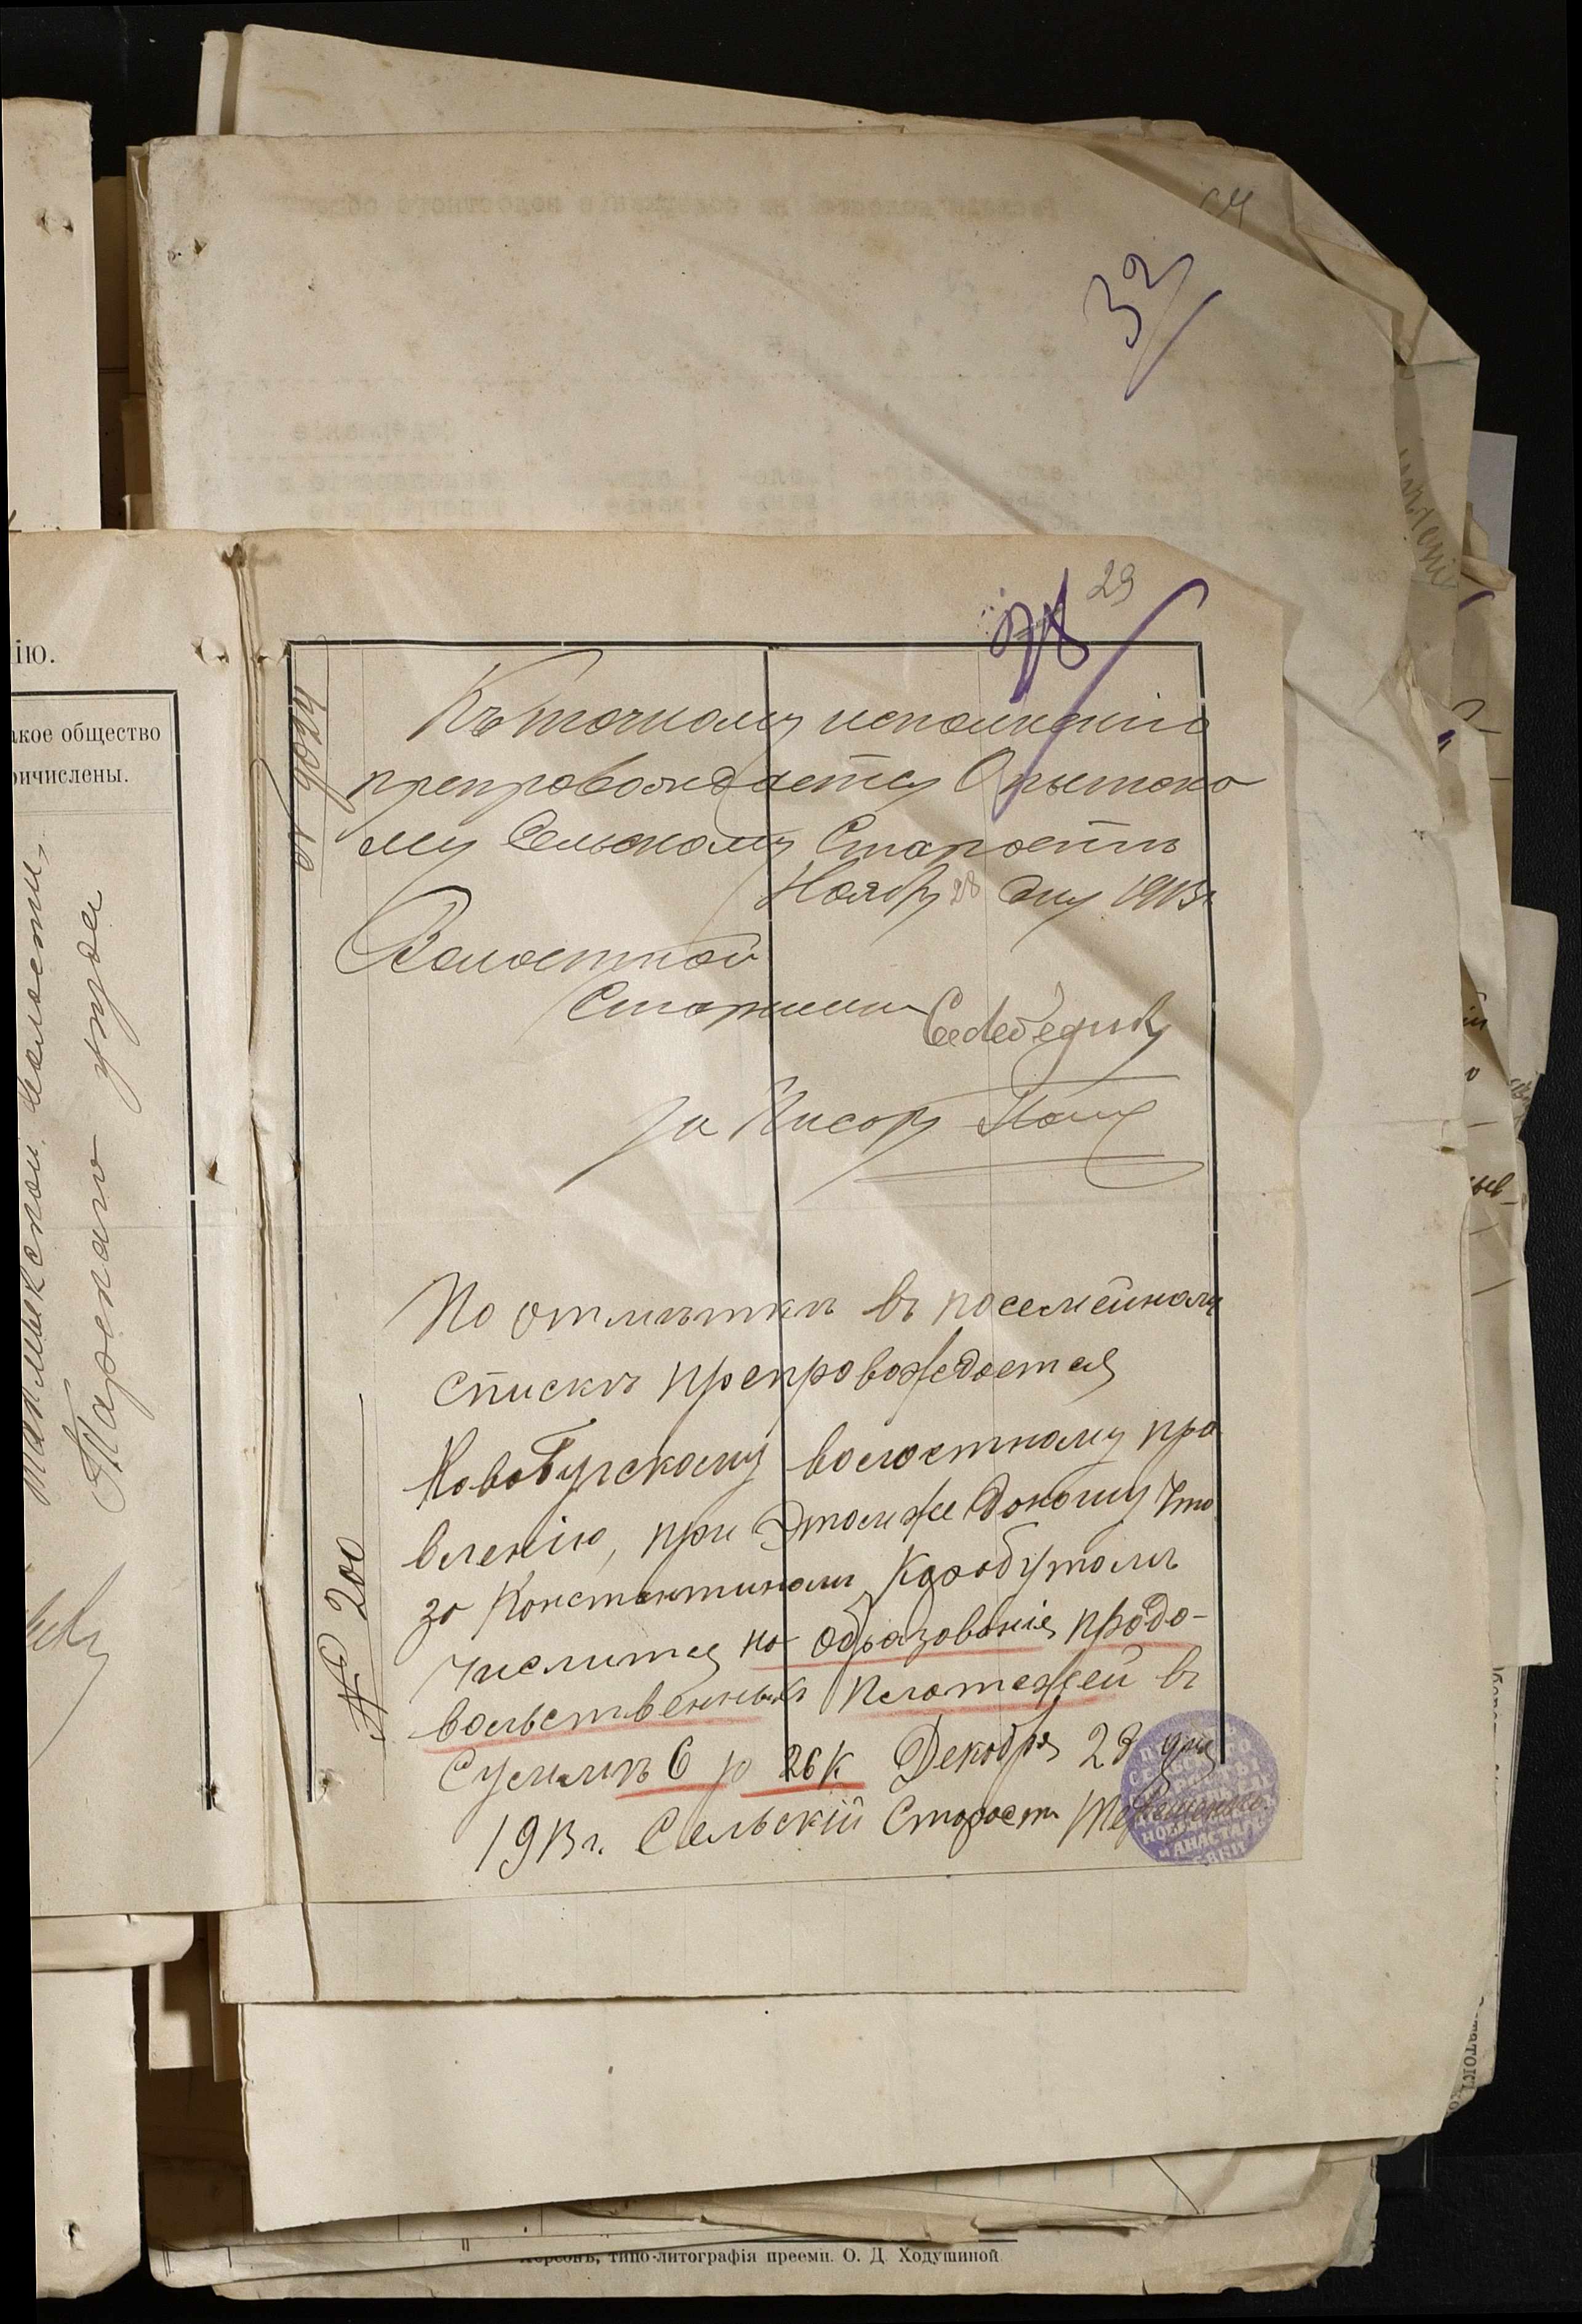 32
29
28
ію.
акое общество
ричислены.
волости,
Таренаго уезда
№ 9024
Къ точному исполненію
препровождается Опытно
му Сельскому Старостѣ
Ноября 28 дня 1913 г
Волостной
Старшина
За Писаря
№ 200
По отмѣткѣ въ посемейномъ
спискѣ препровождается
Новобугскому волостному пра
вленію, при этомъ же доношу что
за Константиномъ Коробутомъ
числится на образованіе продо-
вольственныхъ платежей въ
Суммѣ 6 р 26 к Декабря 28 дня
1913 г. Сельскій Староста
Херсонъ, типо-литографія преемн. О. Д. Ходушиной